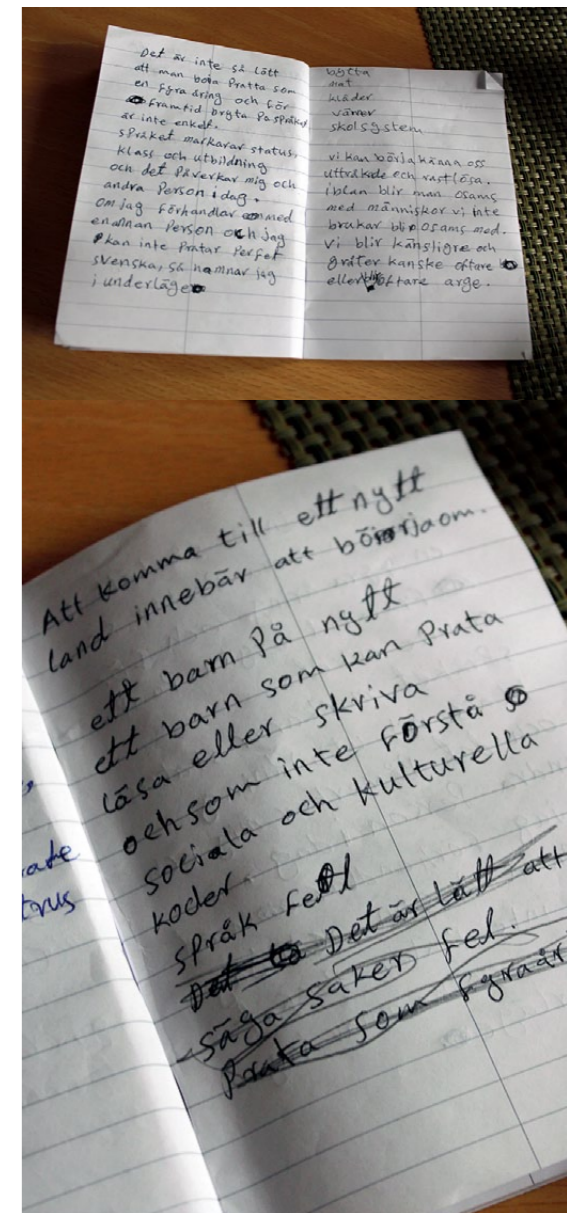 Det är inte så lätt
att man bota Pratta som
en fyra åring och för
framtid bryta på språket
är inte enkelt.
språket markarar status,
klass och utbildning
och det Påverkar mig och
andra Person i dag.
om jag förhandlar med
en annan Person och jag
kan inte Pratar Perfet
svenska, så hamnar jag
i underläge
bytta
mat
kläder
vänner
skolsystem
vi kan börja känna oss
uttråkade och rastlösa.
iblan blir man osams
med människor vi inte
brukar bli osams med.
Vi blir känsligre och
gråter kanske oftare
eller blir oftare arge.
Att komma till ett nytt
land innebär att börja om.
ett barn På nytt
ett barn som kan Prata
läsa eller skriva
och som inte förstå
sociala och kulturella
koder.
språk fel
Det är lätt att
säga saker fel.
Prata som fyraår